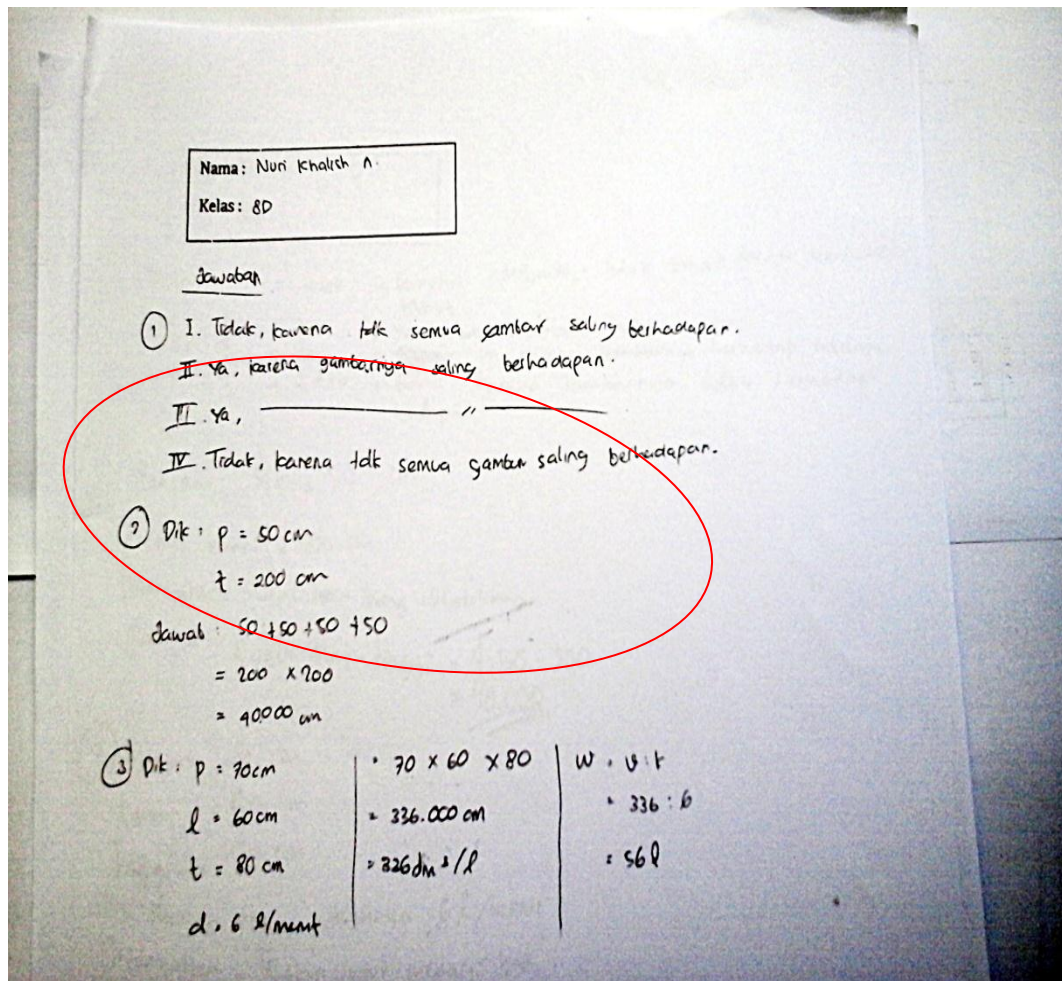 Nama: Nuri Khalish A.
Kelas: 8D
Jawaban
① I. Tidak, karena tdk semua gambar saling berhadapan.
II. Ya, karena gambarnya saling berhadapan.
III. Ya, ——— // ———
IV. Tidak, karena tdk semua gambar saling berhadapan.
② Dik : p = 50 cm
t = 200 cm
Jawab : 50 + 50 + 50 + 50
= 200 x 200
= 40000 cm
③ Dik : p = 70 cm
l = 60 cm
t = 80 cm
d = 6 l/menit
= 70 x 60 x 80
= 336.000 cm
= 326 dm³/l
W = v : t
= 336 : 6
= 56 l